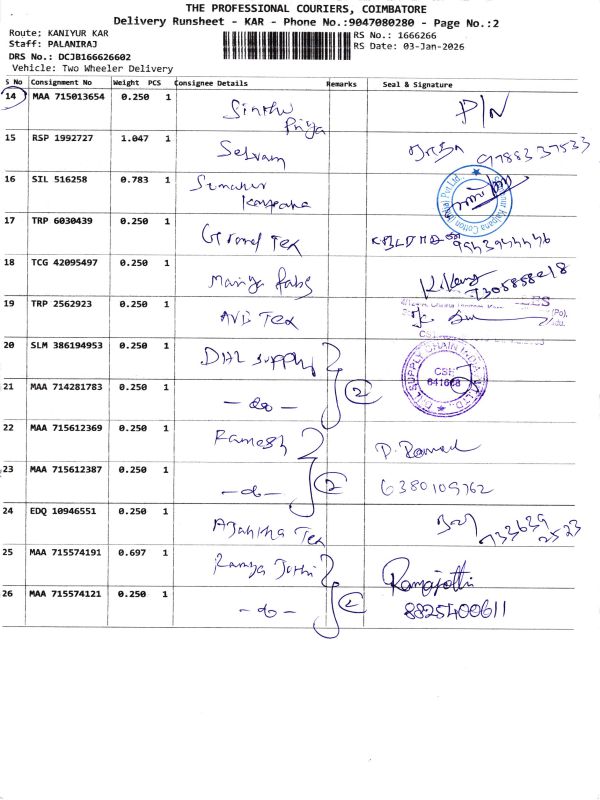 THE PROFESSIONAL COURIERS, COIMBATORE
Delivery Runsheet - KAR - Phone No.:9047080280 - Page No.:2
Route; KANIYUR KAR
Staff: PALANIRAJ
DRS No.: DCJB166626602
Vehicle: Two Wheeler Delivery
RS No.: 1666266
RS Date: 03-Jan-2026
S No Consignment No Weight PCS Consignee Details Remarks Seal & Signature
14 MAA 715013654 0.250 1 Priya P/N
15 RSP 1992727 1.047 1 Selvam 97883 37533
16 SIL 516258 0.783 1
17 TRP 6030439 0.250 1 Grand Tex
18 TCG 42095497 0.250 1 Mariya Fabs
19 TRP 2562923 0.250 1 AVB Tex
20 SLM 386194953 0.250 1 DHL Supply
21 MAA 714281783 0.250 1 - do - 2
CSH
641668
22 MAA 715612369 0.250 1 Ramesh
23 MAA 715612387 0.250 1 - do - 2 6380109762
24 EDQ 10946551 0.250 1 Ajantha Tex
25 MAA 715574191 0.697 1 Ramya Jothi Ramajothi
26 MAA 715574121 0.250 1 - do - 2 8825400611